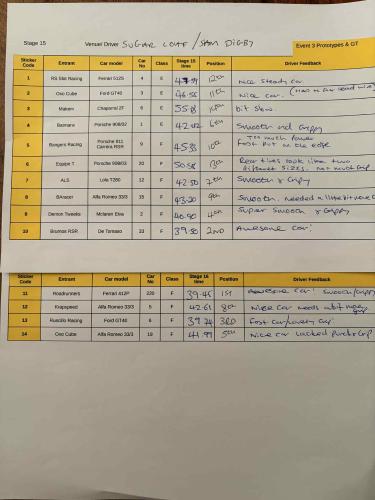 Stage 15 Venue/ Driver SUGAR LOAF / SAM DIGBY
Event 3 Prototypes & GT
Sticker Code Entrant Car model Car No Class Stage 15 time Position Driver Feedback
1 RS Slot Racing Ferrari 512S 4 E 12th Nice steady car
2 Oxo Cube Ford GT40 3 E 46.55 11th Nice car.
3 Makem Chaparral 2F 6 E 55.8 bit slow.
4 Batmanx Porsche 908/02 1 E 42.02 6th Smooth and Grippy
5 Bangers Racing Porsche 911 Carrera RSR 9 E 45.33 10th Too much Power
Fast but on the edge
6 Equipe T Porsche 998/03 20 F 50.58 13th Rear tires look like two
different sizes. not much Grip
7 ALS Lola T280 12 F 42.50 7th Smooth & Grippy
8 BAracer Alfa Romeo 33/3 15 F 43.20 9th Smooth. needed a little bit more
9 Demon Tweeks Mclaren Elva 2 F 40.90 4th Super Smooth & Grippy
10 Brumos RSR De Tomaso 33 F 39.50 2ND Awesome Car!
Sticker Code Entrant Car model Car No Class Stage 15 time Position Driver Feedback
11 Roadrunners Ferrari 412P 220 F 39.45 1st Awesome Car! Smooth/Grippy
12 Krapspeed Alfa Romeo 33/3 5 F 42.61 8th Nice Car needs a bit more grip
13 Ruscilio Racing Ford GT40 6 F 39.74 3RD Fast Car/lovely Grip
14 Oxo Cube Alfa Romeo 33/3 19 F 41.99 5th Nice car lacked Grip